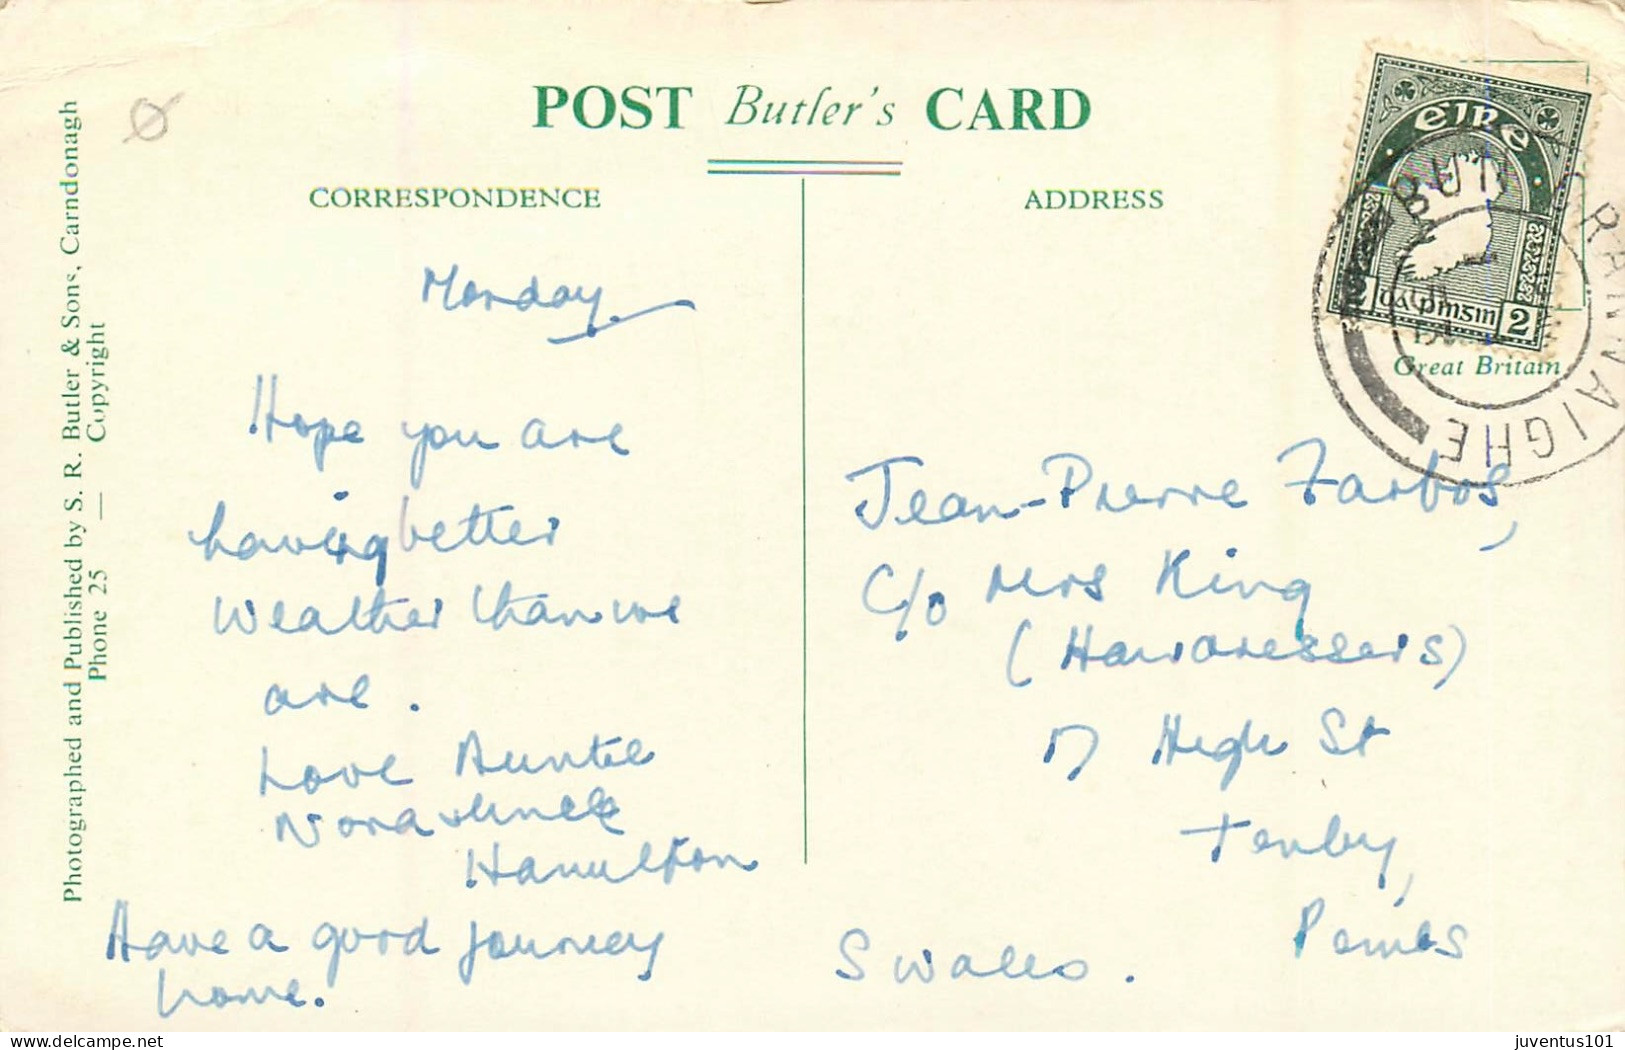 POST Butler's CARD
CORRESPONDENCE
ADDRESS
Photographed and Published by S. R. Butler & Sons, Carndonagh
Phone 25 — Copyright
éire
2 pinginn 2
Great Britain
BUN CRANNAIGHE
Monday.
Hope you are
having better
weather than we
are.
Love Auntie
Nora & Uncle
Hamilton
Have a good journey
home.
Jean-Pierre Farbos,
C/o Mrs King
(Hairdressers)
17 High St
Tenby,
Pembs
S Wales.
delcampe.net
juventus101